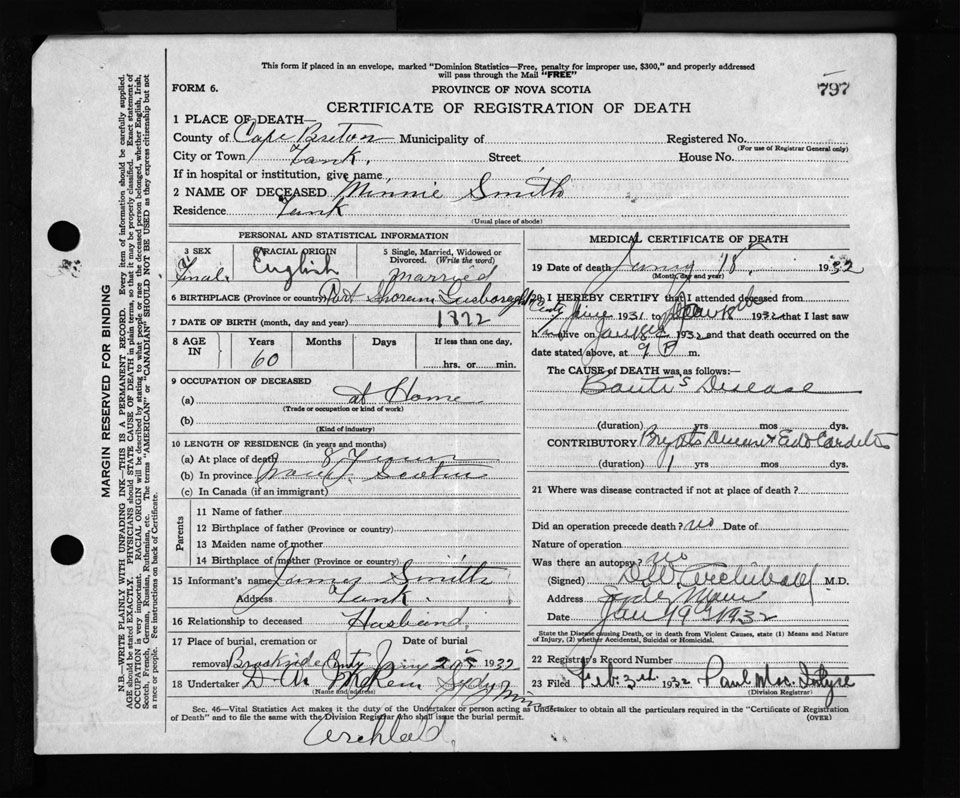 This form if placed in an envelope, marked "Dominion Statistics—Free, penalty for improper use, $300," and properly addressed
will pass through the Mail "FREE"
FORM 6.
PROVINCE OF NOVA SCOTIA
797
CERTIFICATE OF REGISTRATION OF DEATH
1 PLACE OF DEATH—
County of Cape Breton Municipality of
Registered No.
(For use of Registrar General only)
City or Town Tank. Street House No.
If in hospital or institution, give name
2 NAME OF DECEASED Minnie Smith
Residence Tank
(Usual place of abode)
PERSONAL AND STATISTICAL INFORMATION
3 SEX
RACIAL ORIGIN
English
5 Single, Married, Widowed or
Divorced. (Write the word)
Married
6 BIRTHPLACE (Province or country) Port
7 DATE OF BIRTH (month, day and year) 1872
8 AGE IN
Years Months Days If less than one day,
60
hrs. or min.
9 OCCUPATION OF DECEASED
(a) at Home
(Trade or occupation or kind of work)
(b)
(Kind of industry)
10 LENGTH OF RESIDENCE (in years and months)
(a) At place of death 8
(b) In province
(c) In Canada (if an immigrant)
Parents
11 Name of father
12 Birthplace of father (Province or country)
13 Maiden name of mother
14 Birthplace of mother (Province or country)
15 Informant's name James Smith
Address Tank.
16 Relationship to deceased Husband
17 Place of burial, cremation or Date of burial
removal Brookside 1932
18 Undertaker
(Name and address)
MEDICAL CERTIFICATE OF DEATH
19 Date of death 18. 1932
(Month, day and year)
20 I HEREBY CERTIFY that I attended deceased from
June 1931 to 1932 that I last saw
h alive on 1932 and that death occurred on
date stated above, at 9 P m.
The CAUSE OF DEATH was as follows:—
Disease
(duration) yrs mos dys.
CONTRIBUTORY
(duration) 1 yrs mos dys.
21 Where was disease contracted if not at place of death?
Did an operation precede death? no Date of
Nature of operation
Was there an autopsy? no
(Signed) Archibald M.D.
Address
Date Jan 19 1932
State the Disease causing Death, or in death from Violent Causes, state (1) Means and Nature
of Injury, (2) whether Accidental, Suicidal or Homicidal.
22 Registrar's Record Number
23 Filed Feb 3rd 1932 Paul
(Division Registrar)
Sec. 46—Vital Statistics Act makes it the duty of the Undertaker or person acting as Undertaker to obtain all the particulars required in the "Certificate of Registration
of Death" and to file the same with the Division Registrar who shall issue the burial permit.
(OVER)
MARGIN RESERVED FOR BINDING
N.B.—WRITE PLAINLY WITH UNFADING INK—THIS IS A PERMANENT RECORD. Every item of information should be carefully supplied.
AGE should be stated EXACTLY. PHYSICIANS should STATE CAUSE OF DEATH in plain terms, so that it may be properly classified. Exact statement of
OCCUPATION is very important. RACIAL ORIGIN will be described by stating to what people or race the deceased person belonged, whether English, Irish,
Scotch, French, German, Russian, Ruthenian, etc. The terms "AMERICAN" or "CANADIAN" SHOULD NOT BE USED as they express citizenship but not
a race or people. Fee instructions on back of Certificate.